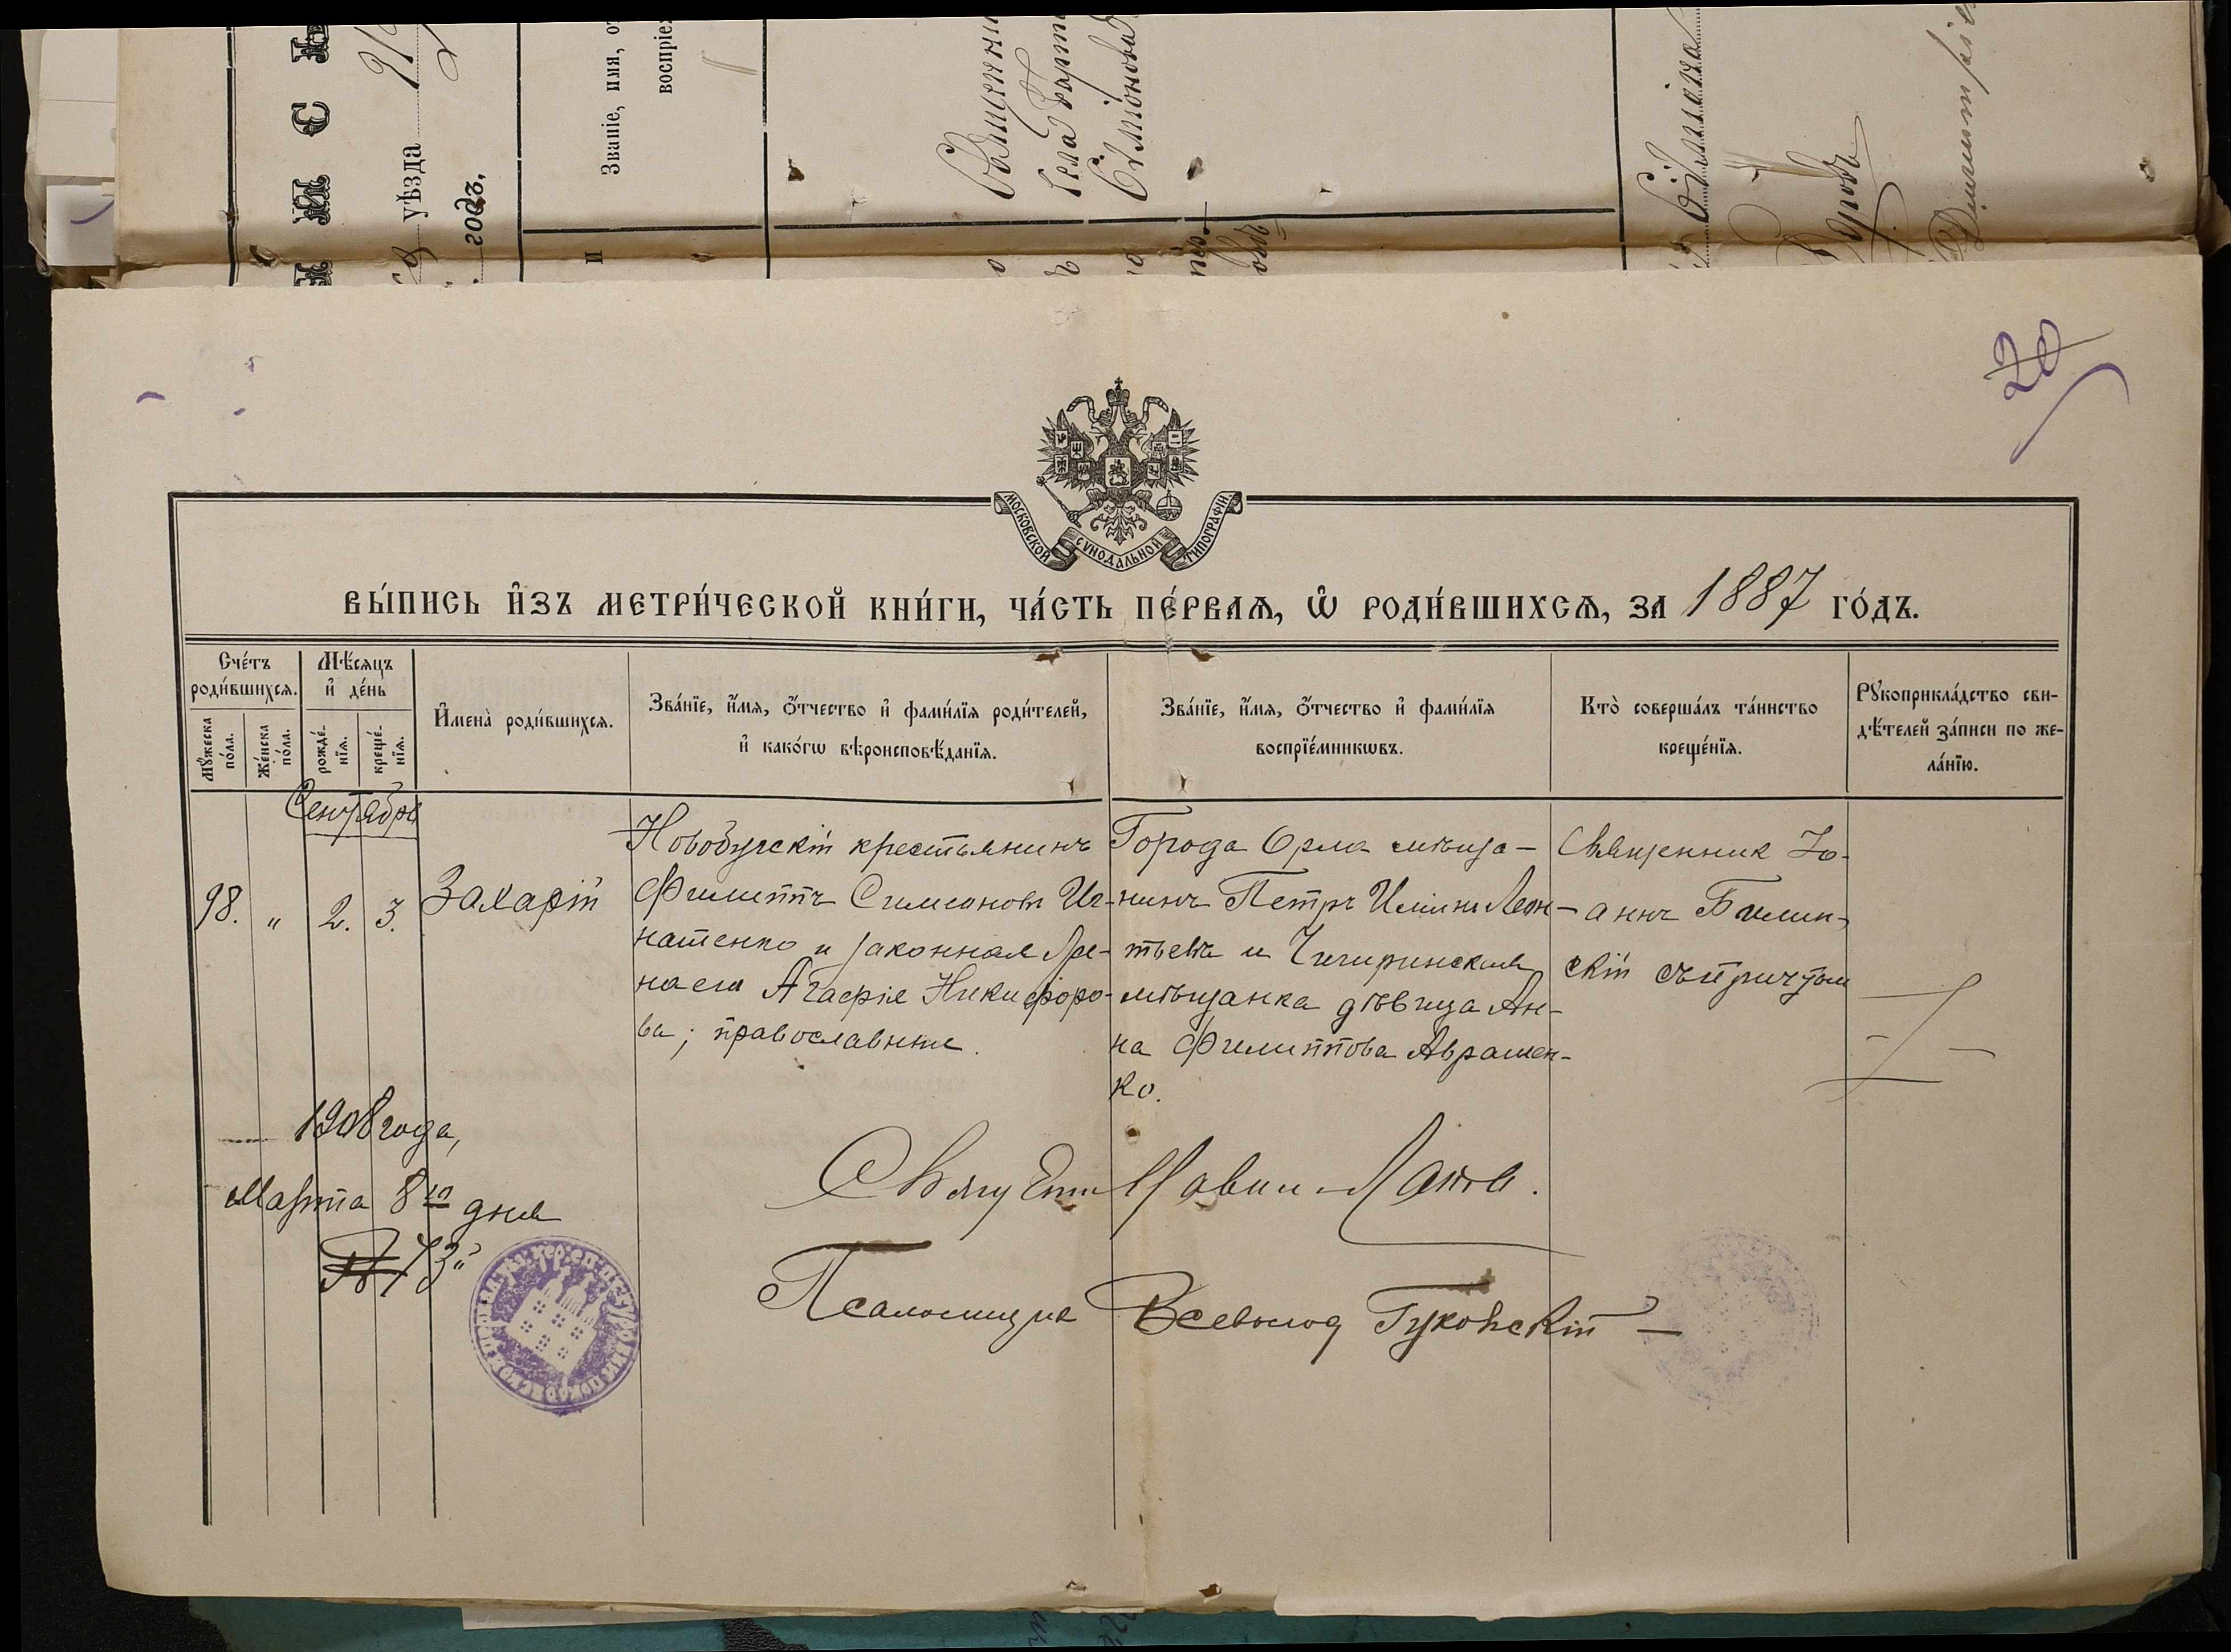 уѣзда
годъ,
Званіе, имя, о
воспріе
и
20
МОСКОВСКОЙ СѴНОДАЛЬНОЙ ТИПОГРАФІИ
ВЫ́ПИСЬ И҆ЗЪ МЕТРИ́ЧЕСКОЙ КНИ́ГИ, ЧА́СТЬ ПЕ́РВАѦ, Ѡ҆ РОДИ́ВШИХСѦ, ЗА 1887 ГО́ДЪ.
Сче́тъ
роди́вшихсѧ.
Мꙋ́жеска
по́ла.
Же́нска
по́ла.
Мѣ́сяцъ
и҆ де́нь
рожде́-
нїѧ.
креще́-
нїѧ.
И҆мена̀ роди́вшихсѧ.
Зва́нїе, и҆́мѧ, ѻ҆́тчество и҆ фами́лїѧ роди́телей,
и҆ како́гѡ вѣроисповѣ́данїѧ.
Зва́нїе, и҆́мѧ, ѻ҆́тчество и҆ фами́лїѧ
воспрїе́мникѡвъ.
Кто̀ соверша́лъ та́инство
креще́нїѧ.
Рꙋкоприкла́дство сви-
дѣ́телей за́писи по же-
ла́нїю.
Сентябрь
98. " 2. 3.
Захарій
Новобугскій крестьянинъ
Филиппъ Симеоновъ Иг-
натенко и законная же-
на его Агафія Никифоро-
ва; православные.
Города Орла мѣща-
нинъ Петръ Ильинъ Леон-
тьевъ и Чигиринская
мѣщанка дѣвица Ан-
на Филиппова Авраmен-
ко.
Священник Іо-
аннъ Билин-
скій съ причтом
1908 года,
Марта 8го дня
№ 73"
Псаломщик Всеволод Гуковскій